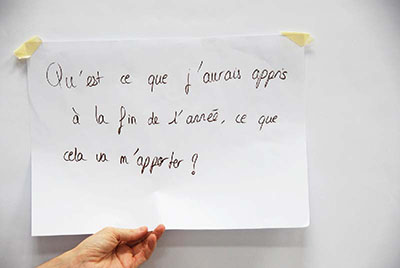 Qu'est ce que j'aurais appris
à la fin de l'année, ce que
cela va m'apporter ?